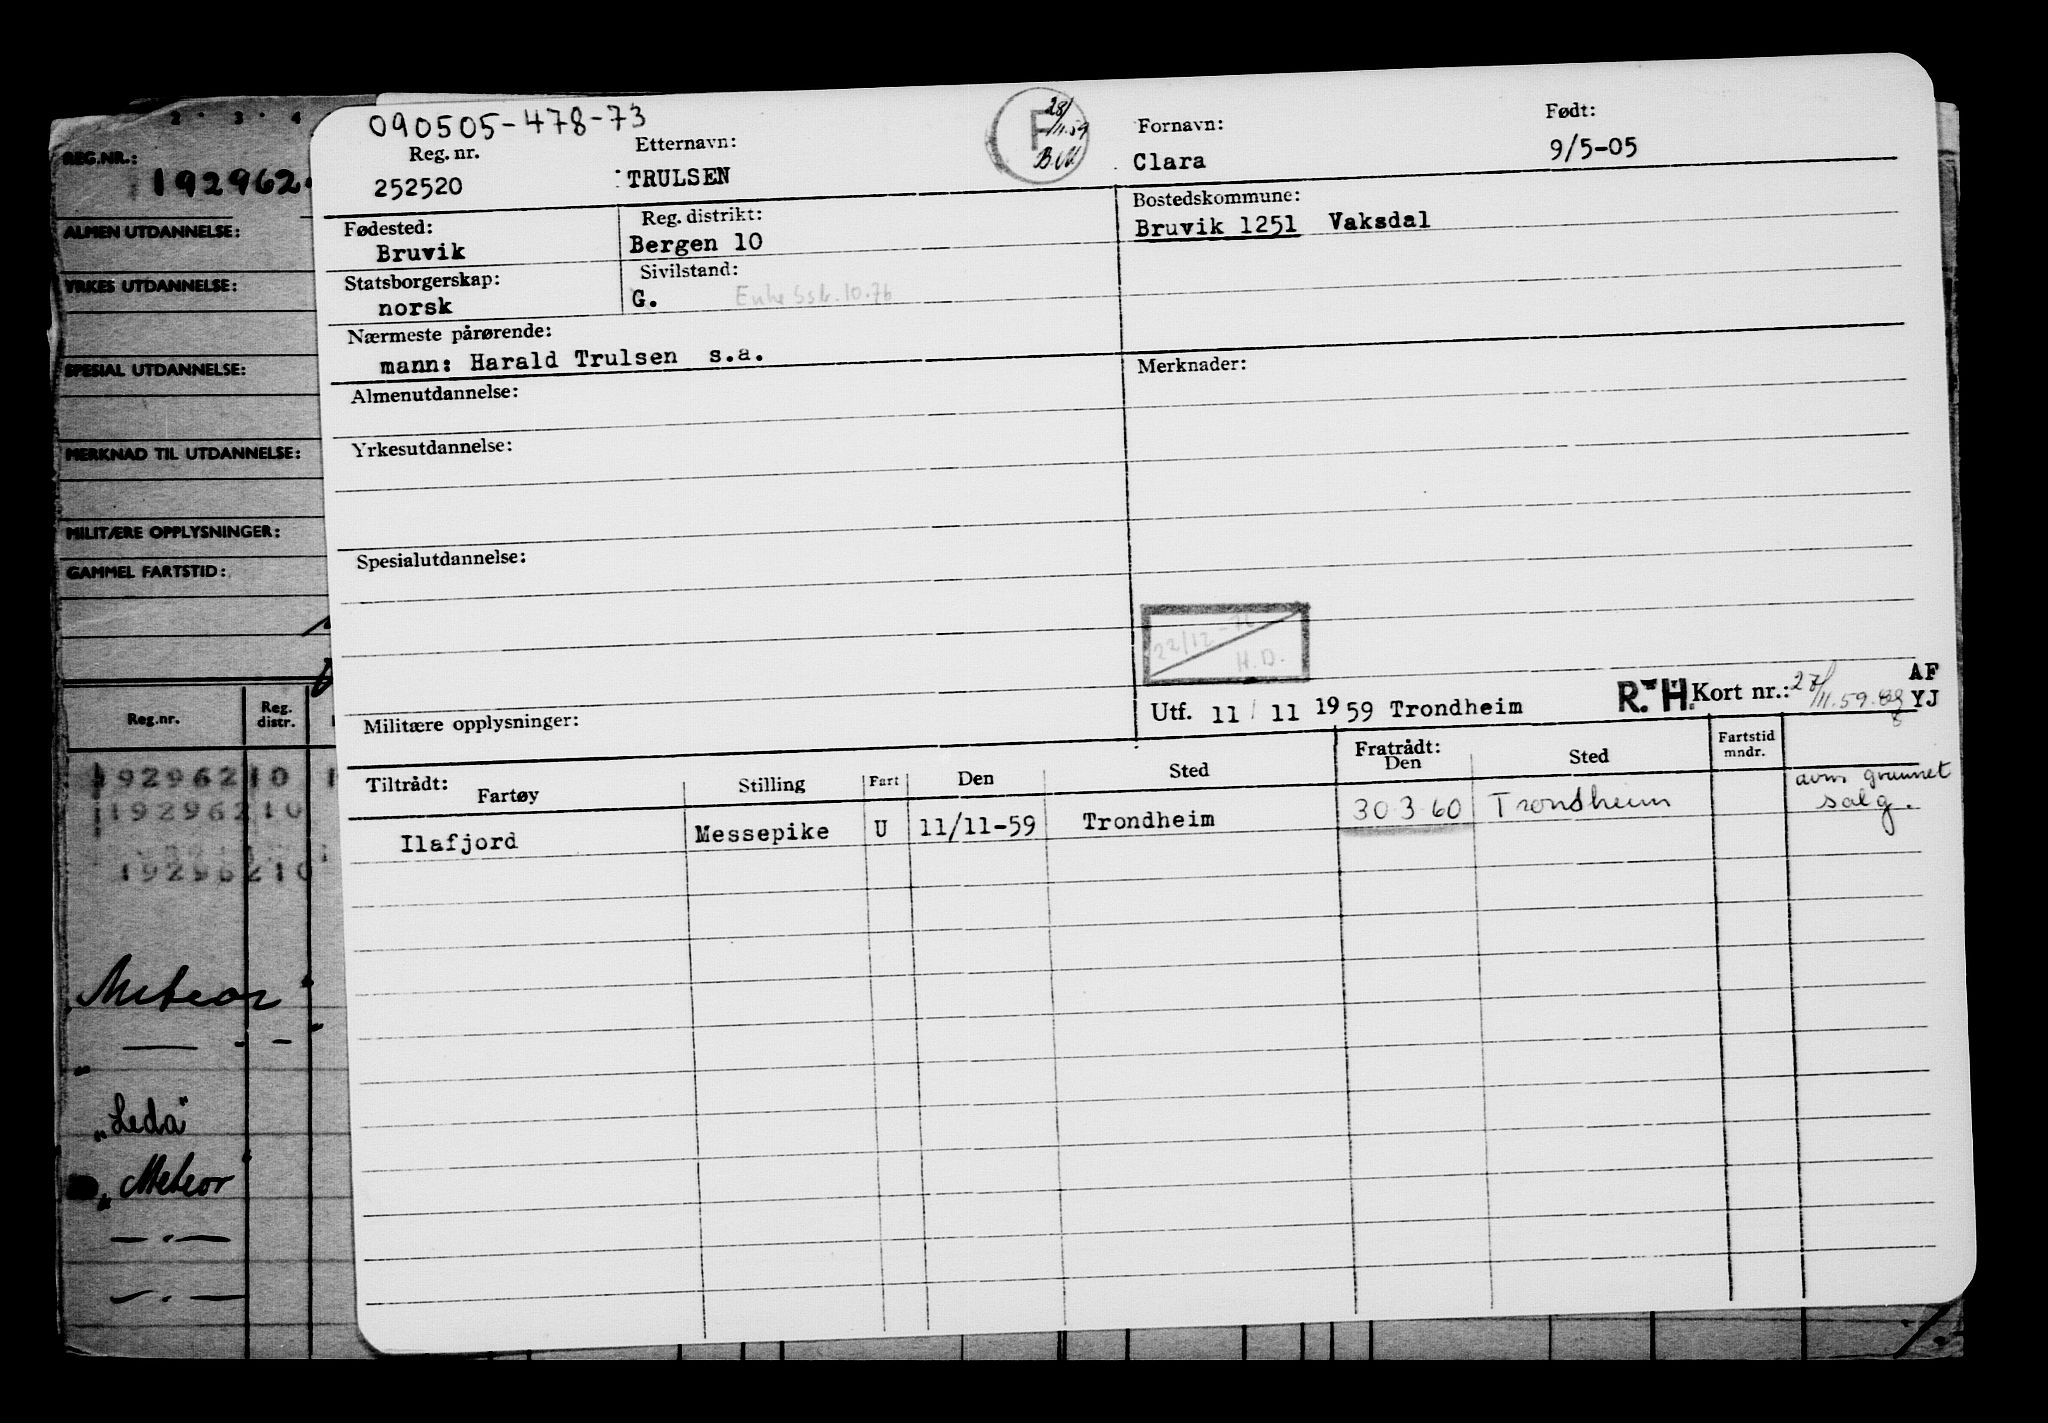 090505-478-73
Reg. nr.
252520
Etternavn:
TRULSEN
F
28/11.59
Fornavn:
Clara
Født:
9/5-05
Fødested:
Bruvik
Reg. distrikt:
Bergen 10
Bostedskommune:
Bruvik 1251 Vaksdal
Statsborgerskap:
norsk
Sivilstand:
G.
Nærmeste pårørende:
mann: Harald Trulsen s.a.
Almenutdannelse:
Merknader:
Yrkesutdannelse:
Spesialutdannelse:
22/12-76
H.D.
Militære opplysninger:
Utf. 11/11 1959 Trondheim
R.H. Kort nr.: 27/11.59.
AF
YJ
Tiltrådt:
Fartøy
Stilling
Fart
Den
Sted
Fratrådt:
Den
Sted
Fartstid
mndr.
Ilafjord
Messepike
U
11/11-59
Trondheim
30 3 60
Trondheim
avm grunnet
salg.
2 3 4
REG.NR.:
192962
ALMEN UTDANNELSE:
YRKES UTDANNELSE:
SPESIAL UTDANNELSE:
MERKNAD TIL UTDANNELSE:
MILITÆRE OPPLYSNINGER:
GAMMEL FARTSTID:
Reg.nr.
Reg.
distr.
19296210
19296210
19296210
Meteor
"Leda"
"Meteor"